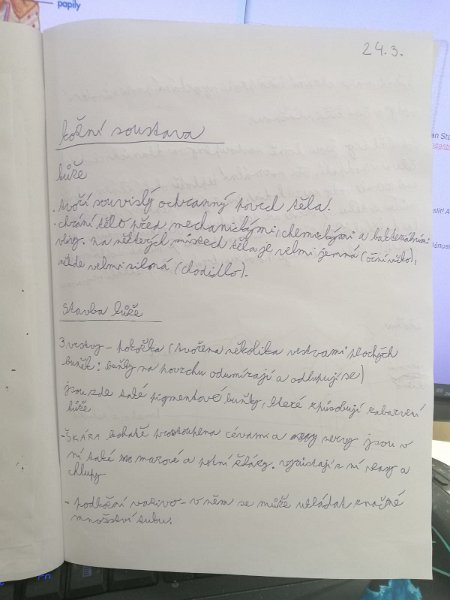 papily
24.3.
kožní soustava
kůže
. tvoří souvislý ochranný povrch těla.
. chrání tělo před mechanickými, chemickými a bakteriálními
vlivy. na některých místech těla je velmi jemná (oční víčko),
někde velmi silná (chodidlo).
Stavba kůže
3 vrstvy - pokožka (tvořena několika vrstvami plochých
buněk: buňky na povrchu odumírají a odlupují se)
jsou zde také pigmentové buňky, které způsobují zabarvení
kůže
- ŠKÁRA bohatě prostoupena cévami a nervy jsou v
ní také mazová a potní žlázy. vyúsťují z ní vlasy a
chlupy
- podkožní vazivo - v něm se může ukládat značné
množství tuku.